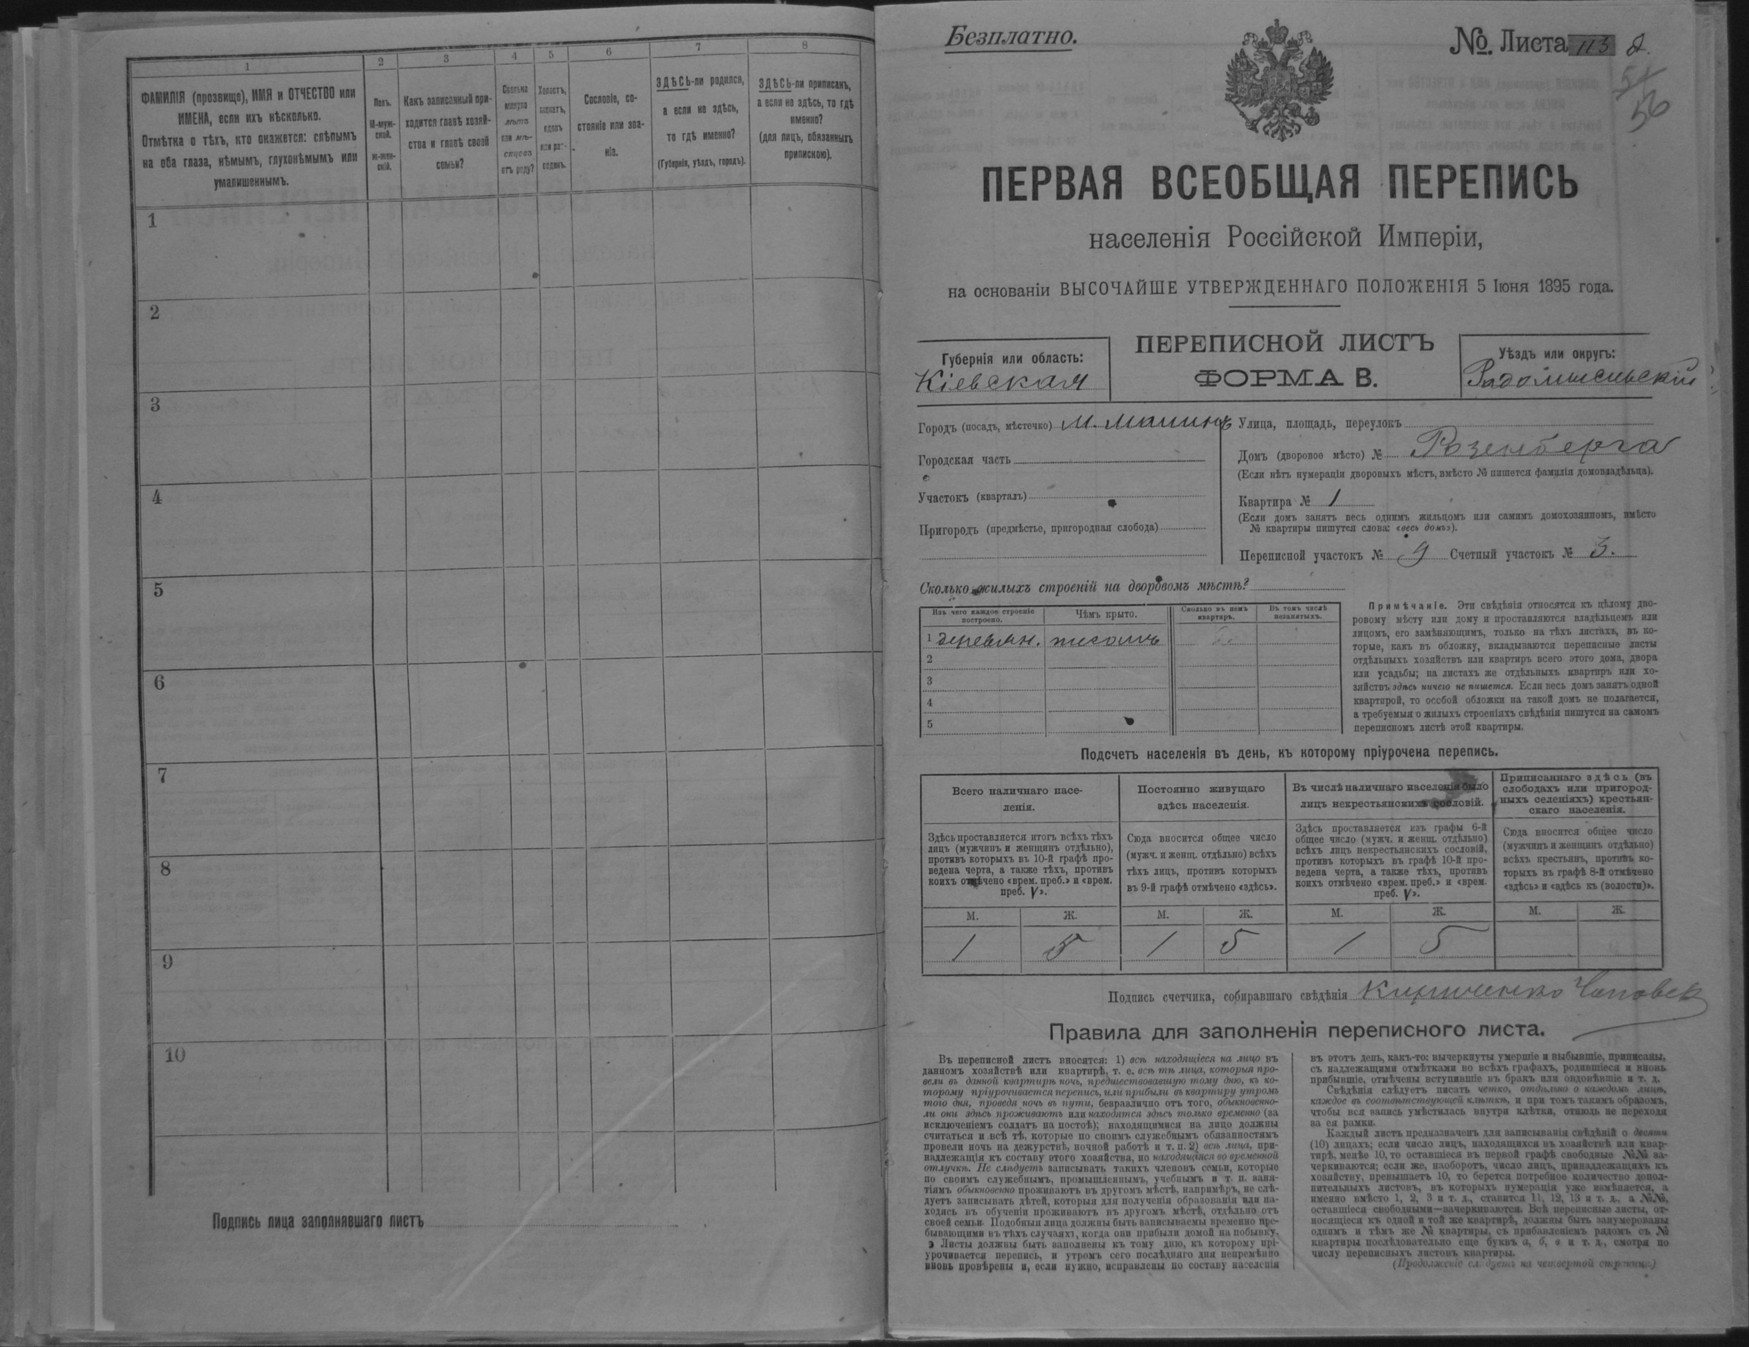 1
2
3
4
5
6
7
8
ФАМИЛІЯ (прозвище), ИМЯ и ОТЧЕСТВО или
ИМЕНА, если ихъ нѣсколько.
Отмѣтка о тѣхъ, кто окажется: слѣпымъ
на оба глаза, нѣмымъ, глухонѣмымъ или
умалишеннымъ.
Полъ.
М-муж-
ской.
ж-жен-
скій.
Какъ записанный при-
ходится главѣ хозяй-
ства и главѣ своей
семьи?
Сколько
минуло
лѣтъ
или мѣ-
сяцевъ
отъ роду?
Холостъ,
женатъ,
вдовъ
или раз-
веденъ.
Сословіе, со-
стояніе или зва-
ніе.
ЗДѢСЬ-ли родился,
а если не здѣсь,
то гдѣ именно?
(Губернія, уѣздъ, городъ).
ЗДѢСЬ-ли приписанъ,
а если не здѣсь, то гдѣ
именно?
(для лицъ, обязанныхъ
припискою).
1
2
3
4
5
6
7
8
9
10
Подпись лица заполнявшаго листъ
Безплатно.
№ Листа 113 2.
51
56
ПЕРВАЯ ВСЕОБЩАЯ ПЕРЕПИСЬ
населенія Россійской Имперіи,
на основаніи ВЫСОЧАЙШЕ УТВЕРЖДЕННАГО ПОЛОЖЕНІЯ 5 Іюня 1895 года.
Губернія или область:
Кіевская
ПЕРЕПИСНОЙ ЛИСТЪ
ФОРМА В.
Уѣздъ или округъ:
Радомысльскій
Городъ (посадъ, мѣстечко) м. Малинъ
Городская часть
Участокъ (кварталъ)
Пригородъ (предмѣстье, пригородная слобода)
Улица, площадь, переулокъ
Домъ (дворовое мѣсто) № Розенберга
(Если нѣтъ нумераціи дворовыхъ мѣстъ, вмѣсто № пишется фамилія домовладѣльца).
Квартира № 1
(Если домъ занятъ весь однимъ жильцомъ или самимъ домохозяиномъ, вмѣсто
№ квартиры пишутся слова: «весь домъ»).
Переписной участокъ № 9 Счетный участокъ № 3.
Сколько жилыхъ строеній на дворовомъ мѣстѣ?
Изъ чего каждое строеніе
построено.
Чѣмъ крыто.
Сколько въ немъ
квартиръ.
Въ томъ числѣ
незанятыхъ.
1 деревян.
2
3
4
5
Примѣчаніе. Эти свѣдѣнія относятся къ цѣлому дво-
ровому мѣсту или дому и проставляются владѣльцемъ или
лицомъ, его замѣняющимъ, только на тѣхъ листахъ, въ ко-
торые, какъ въ обложку, вкладываются переписные листы
отдѣльныхъ хозяйствъ или квартиръ всего этого дома, двора
или усадьбы; на листахъ же отдѣльныхъ квартиръ или хо-
зяйствъ здѣсь ничего не пишется. Если весь домъ занятъ одной
квартирой, то особой обложки на такой домъ не полагается,
а требуемыя о жилыхъ строеніяхъ свѣдѣнія пишутся на самомъ
переписномъ листѣ этой квартиры.
Подсчетъ населенія въ день, къ которому пріурочена перепись.
Всего наличнаго насе-
ленія.
Здѣсь проставляется итогъ всѣхъ тѣхъ
лицъ (мужчинъ и женщинъ отдѣльно),
противъ которыхъ въ 10-й графѣ про-
ведена черта, а также тѣхъ, противъ
коихъ отмѣчено «врем. преб.» и «врем.
преб. V».
М. Ж.
1 5
Постоянно живущаго
здѣсь населенія.
Сюда вносится общее число
(мужч. и женщ. отдѣльно) всѣхъ
тѣхъ лицъ, противъ которыхъ
въ 9-й графѣ отмѣчено «здѣсь».
М. Ж.
1 5
Въ числѣ наличнаго населенія было
лицъ некрестьянскихъ сословій.
Здѣсь проставляется изъ графы 6-й
общее число (мужч. и женщ. отдѣльно)
всѣхъ лицъ некрестьянскихъ сословій,
противъ которыхъ въ графѣ 10-й про-
ведена черта, а также тѣхъ, противъ
коихъ отмѣчено «врем. преб.» и «врем.
преб. V».
М. Ж.
1 5
Приписаннаго здѣсь (въ
слободахъ или пригород-
ныхъ селеніяхъ) крестьян-
скаго населенія.
Сюда вносится общее число
(мужчинъ и женщинъ отдѣльно)
всѣхъ крестьянъ, противъ ко-
торыхъ въ графѣ 8-й отмѣчено
«здѣсь» и «здѣсь къ (волости)».
М. Ж.
Подпись счетчика, собиравшаго свѣдѣнія
Правила для заполненія переписного листа.
Въ переписной листъ вносятся: 1) всѣ находящіеся на лицо въ
данномъ хозяйствѣ или квартирѣ, т. е. всѣ тѣ лица, которыя про-
вели въ данной квартирѣ ночь, предшествовавшую тому дню, къ ко-
торому пріурочивается перепись, или прибыли въ квартиру утромъ
того дня, проведя ночь въ пути, безразлично отъ того, обыкновенно-
ли они здѣсь проживаютъ или находятся здѣсь только временно (за
исключеніемъ солдатъ на постоѣ); находящимися на лицо должны
считаться и всѣ тѣ, которые по своимъ служебнымъ обязанностямъ
провели ночь на дежурствѣ, ночной работѣ и т. п. 2) всѣ лица, при-
надлежащія къ составу этого хозяйства, но находящіяся во временной
отлучкѣ. Не слѣдуетъ записывать такихъ членовъ семьи, которые
по своимъ служебнымъ, промышленнымъ, учебнымъ и т. п. заня-
тіямъ обыкновенно проживаютъ въ другомъ мѣстѣ, напримѣръ, не слѣ-
дуетъ записывать дѣтей, которыя для полученія образованія или на-
ходясь въ обученіи проживаютъ въ другомъ мѣстѣ, отдѣльно отъ
своей семьи. Подобныя лица должны быть записываемы временно пре-
бывающими въ тѣхъ случаяхъ, когда они прибыли домой на побывку.
Листы должны быть заполнены къ тому дню, къ которому прі-
урочивается перепись, и утромъ сего послѣдняго дня непремѣнно
вновь провѣрены и, если нужно, исправлены по составу населенія
въ этотъ день, какъ-то: вычеркнуты умершіе и выбывшіе, приписаны,
съ надлежащими отмѣтками во всѣхъ графахъ, родившіеся и вновь
прибывшіе, отмѣчены вступившіе въ бракъ или овдовѣвшіе и т. д.
Свѣдѣнія слѣдуетъ писать четко, отдѣльно о каждомъ лицѣ,
каждое въ соотвѣтствующей клѣткѣ, и при томъ такимъ образомъ,
чтобы вся запись умѣстилась внутри клѣтки, отнюдь не переходя
за ея рамки.
Каждый листъ предназначенъ для записыванія свѣдѣній о десяти
(10) лицахъ; если число лицъ, находящихся въ хозяйствѣ или квар-
тирѣ, менѣе 10, то оставшіеся въ первой графѣ свободные №№ за-
черкиваются; если же, наоборотъ, число лицъ, принадлежащихъ къ
хозяйству, превышаетъ 10, то берется потребное количество допол-
нительныхъ листовъ, въ которыхъ нумерація уже измѣняется, а
именно вмѣсто 1, 2, 3 и т. д., ставится 11, 12, 13 и т. д., а №№,
оставшіеся свободными—зачеркиваются. Всѣ переписные листы, от-
носящіеся къ одной и той же квартирѣ, должны быть занумерованы
однимъ и тѣмъ же № квартиры, съ прибавленіемъ рядомъ съ №
квартиры послѣдовательно еще буквъ а, б, в и т. д., смотря по
числу переписныхъ листовъ квартиры.
(Продолженіе слѣдуетъ на четвертой страницѣ)